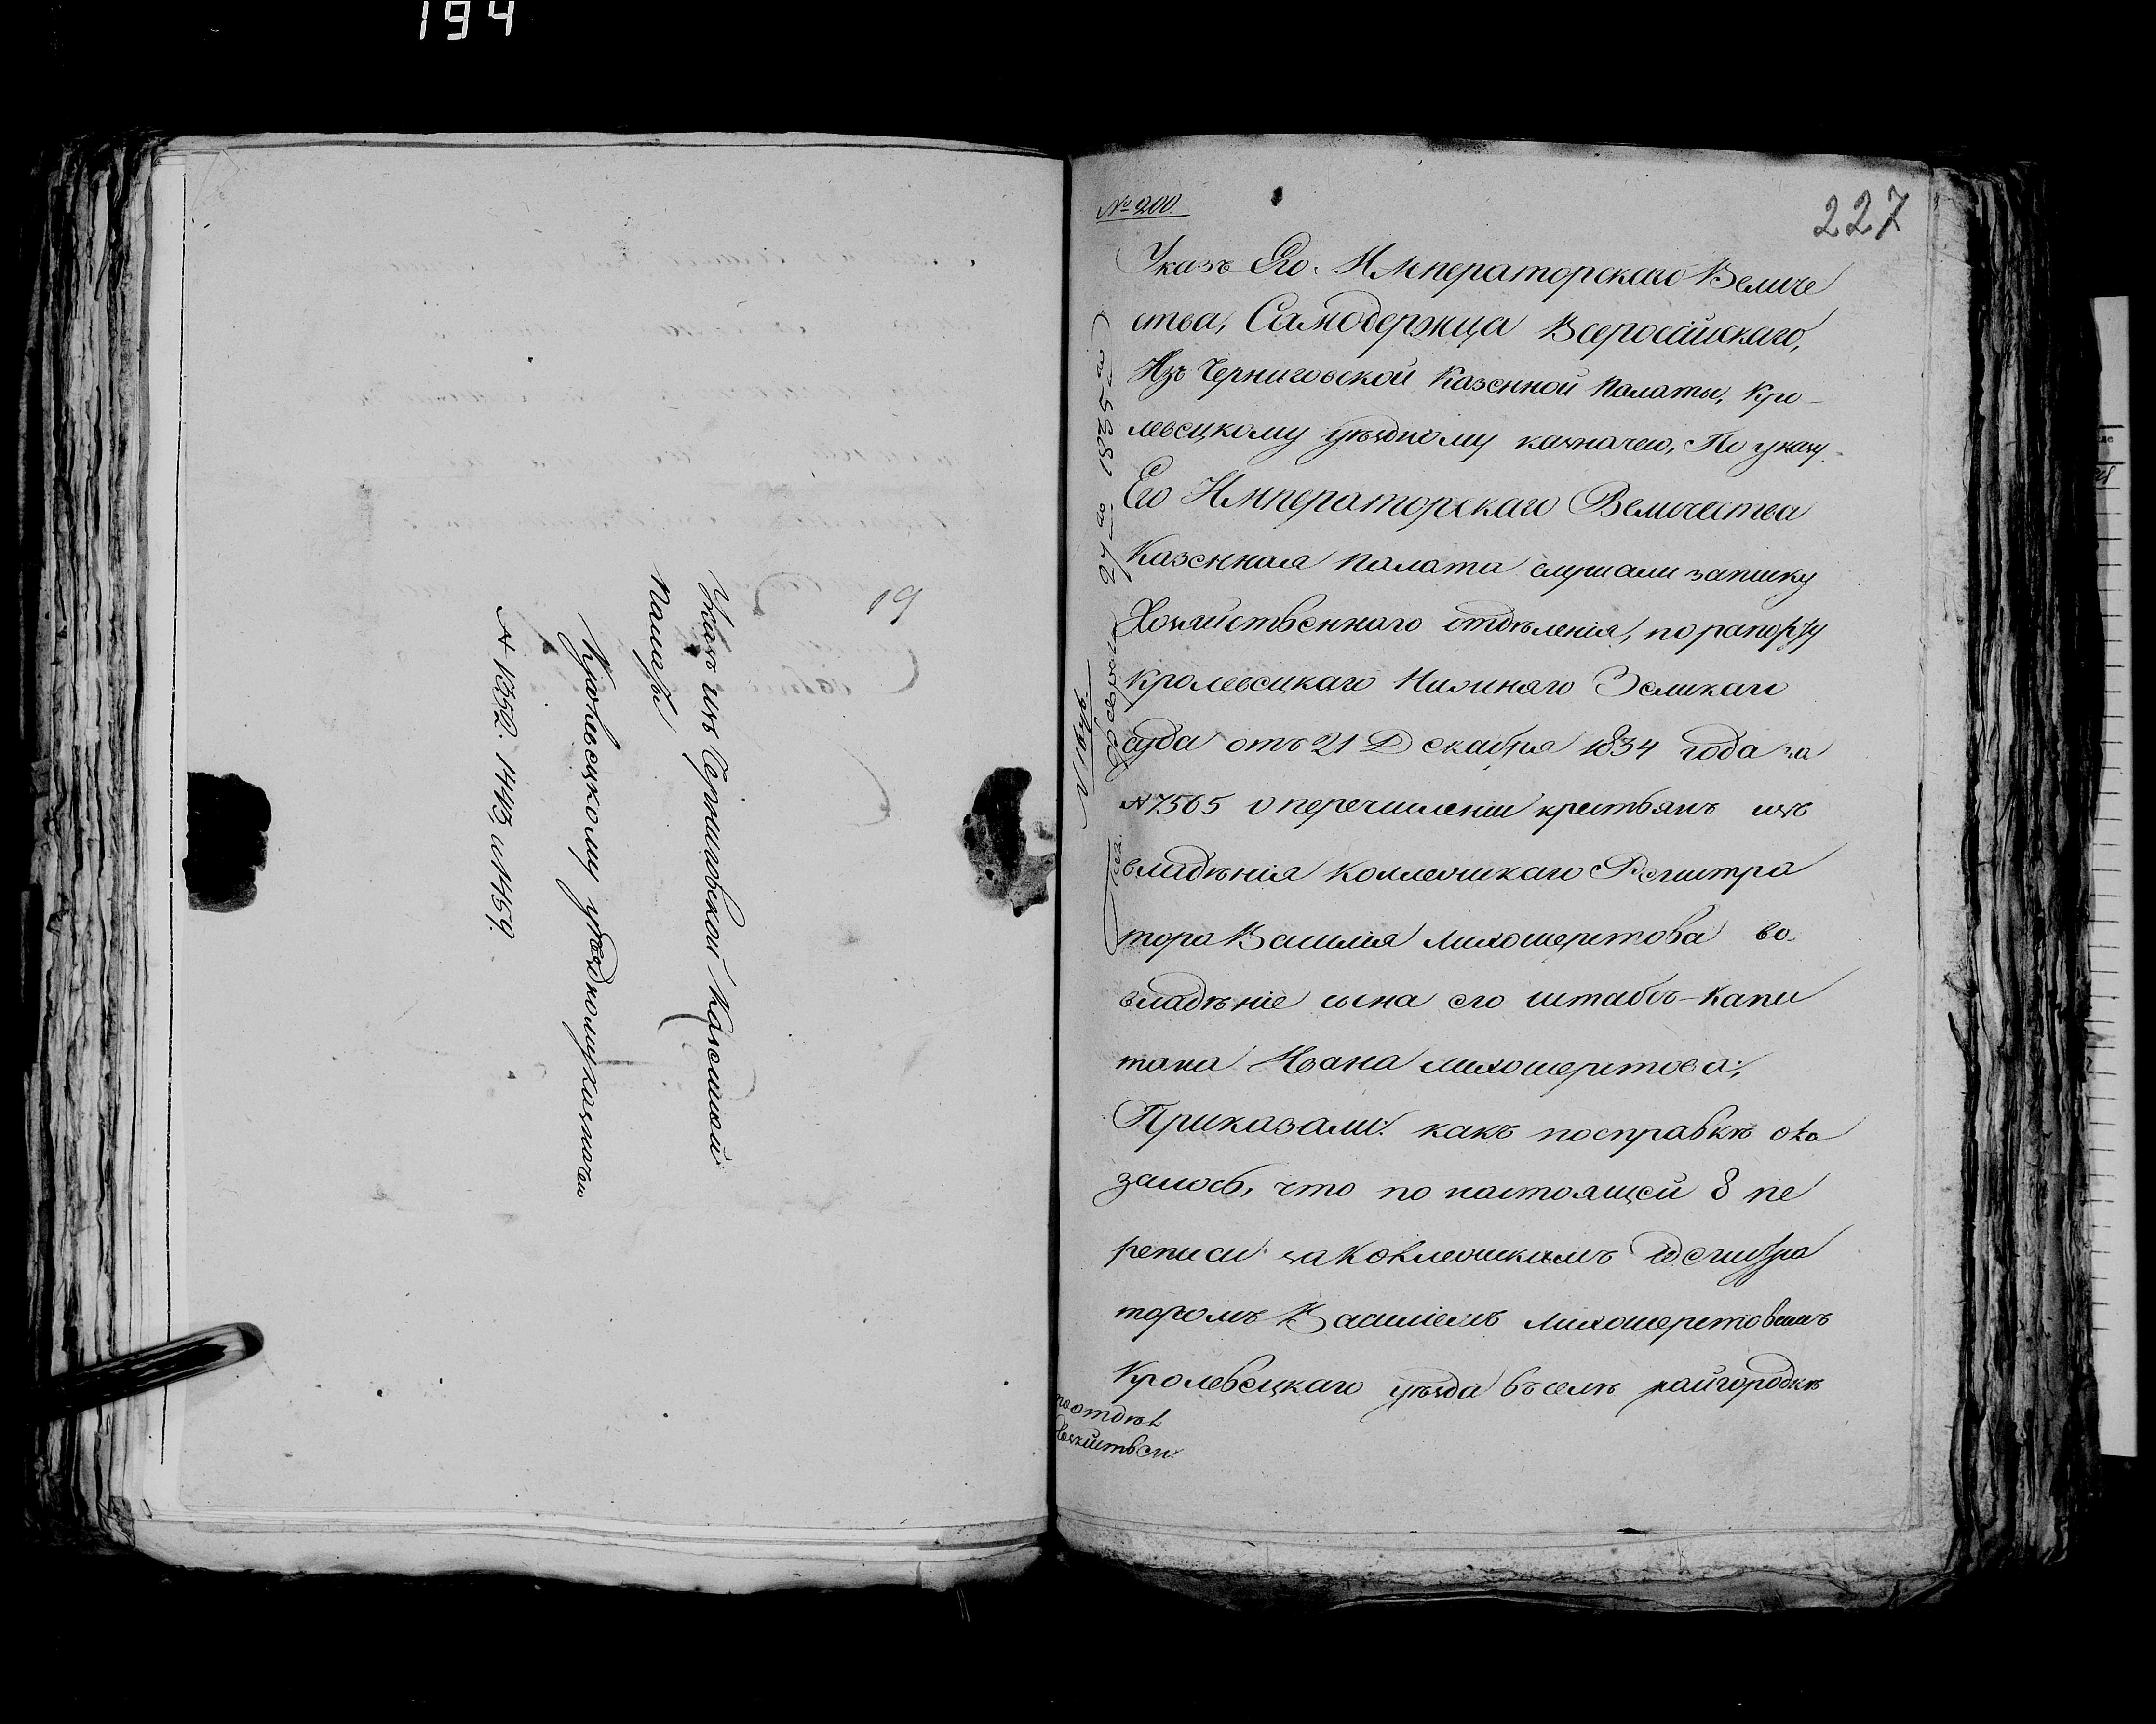 194
19
Указъ изъ Черниговской Казенной
Палаты
Кролевецкому уѣздному казначею
№ 1352. 1443, и 1459.
№ 200.
227
Указъ Его Императорскаго Величе
ства, Самодержца Всеросийскаго,
Изъ Черниговской Казенной Палаты, Кро-
левецкому уѣздному казначею, По указу
Его Императорскаго Величества
Казенная Палата слушали записку
Хозяйственнаго отдѣленія, по рапорту
Кролевецкаго Нижняго Земскаго
суда отъ 21 Декабря 1834 года за
№ 7565 о перечислении крестьянъ изъ
владѣнія коллежскаго Регистра
тора Василия Лихошерстова во
владѣніе сына его штабсъ-капи
тана Ивана Лихошерстова;
Приказали: какъ посправкѣ ока
залось, что по настоящей 8 пе
реписи за Коллежскимъ Регистра
торомъ Василіемъ Лихошерстовымъ
Кролевецкаго уѣзда въ селѣ Райгородкѣ
по отдѣл
Хозяйствен.